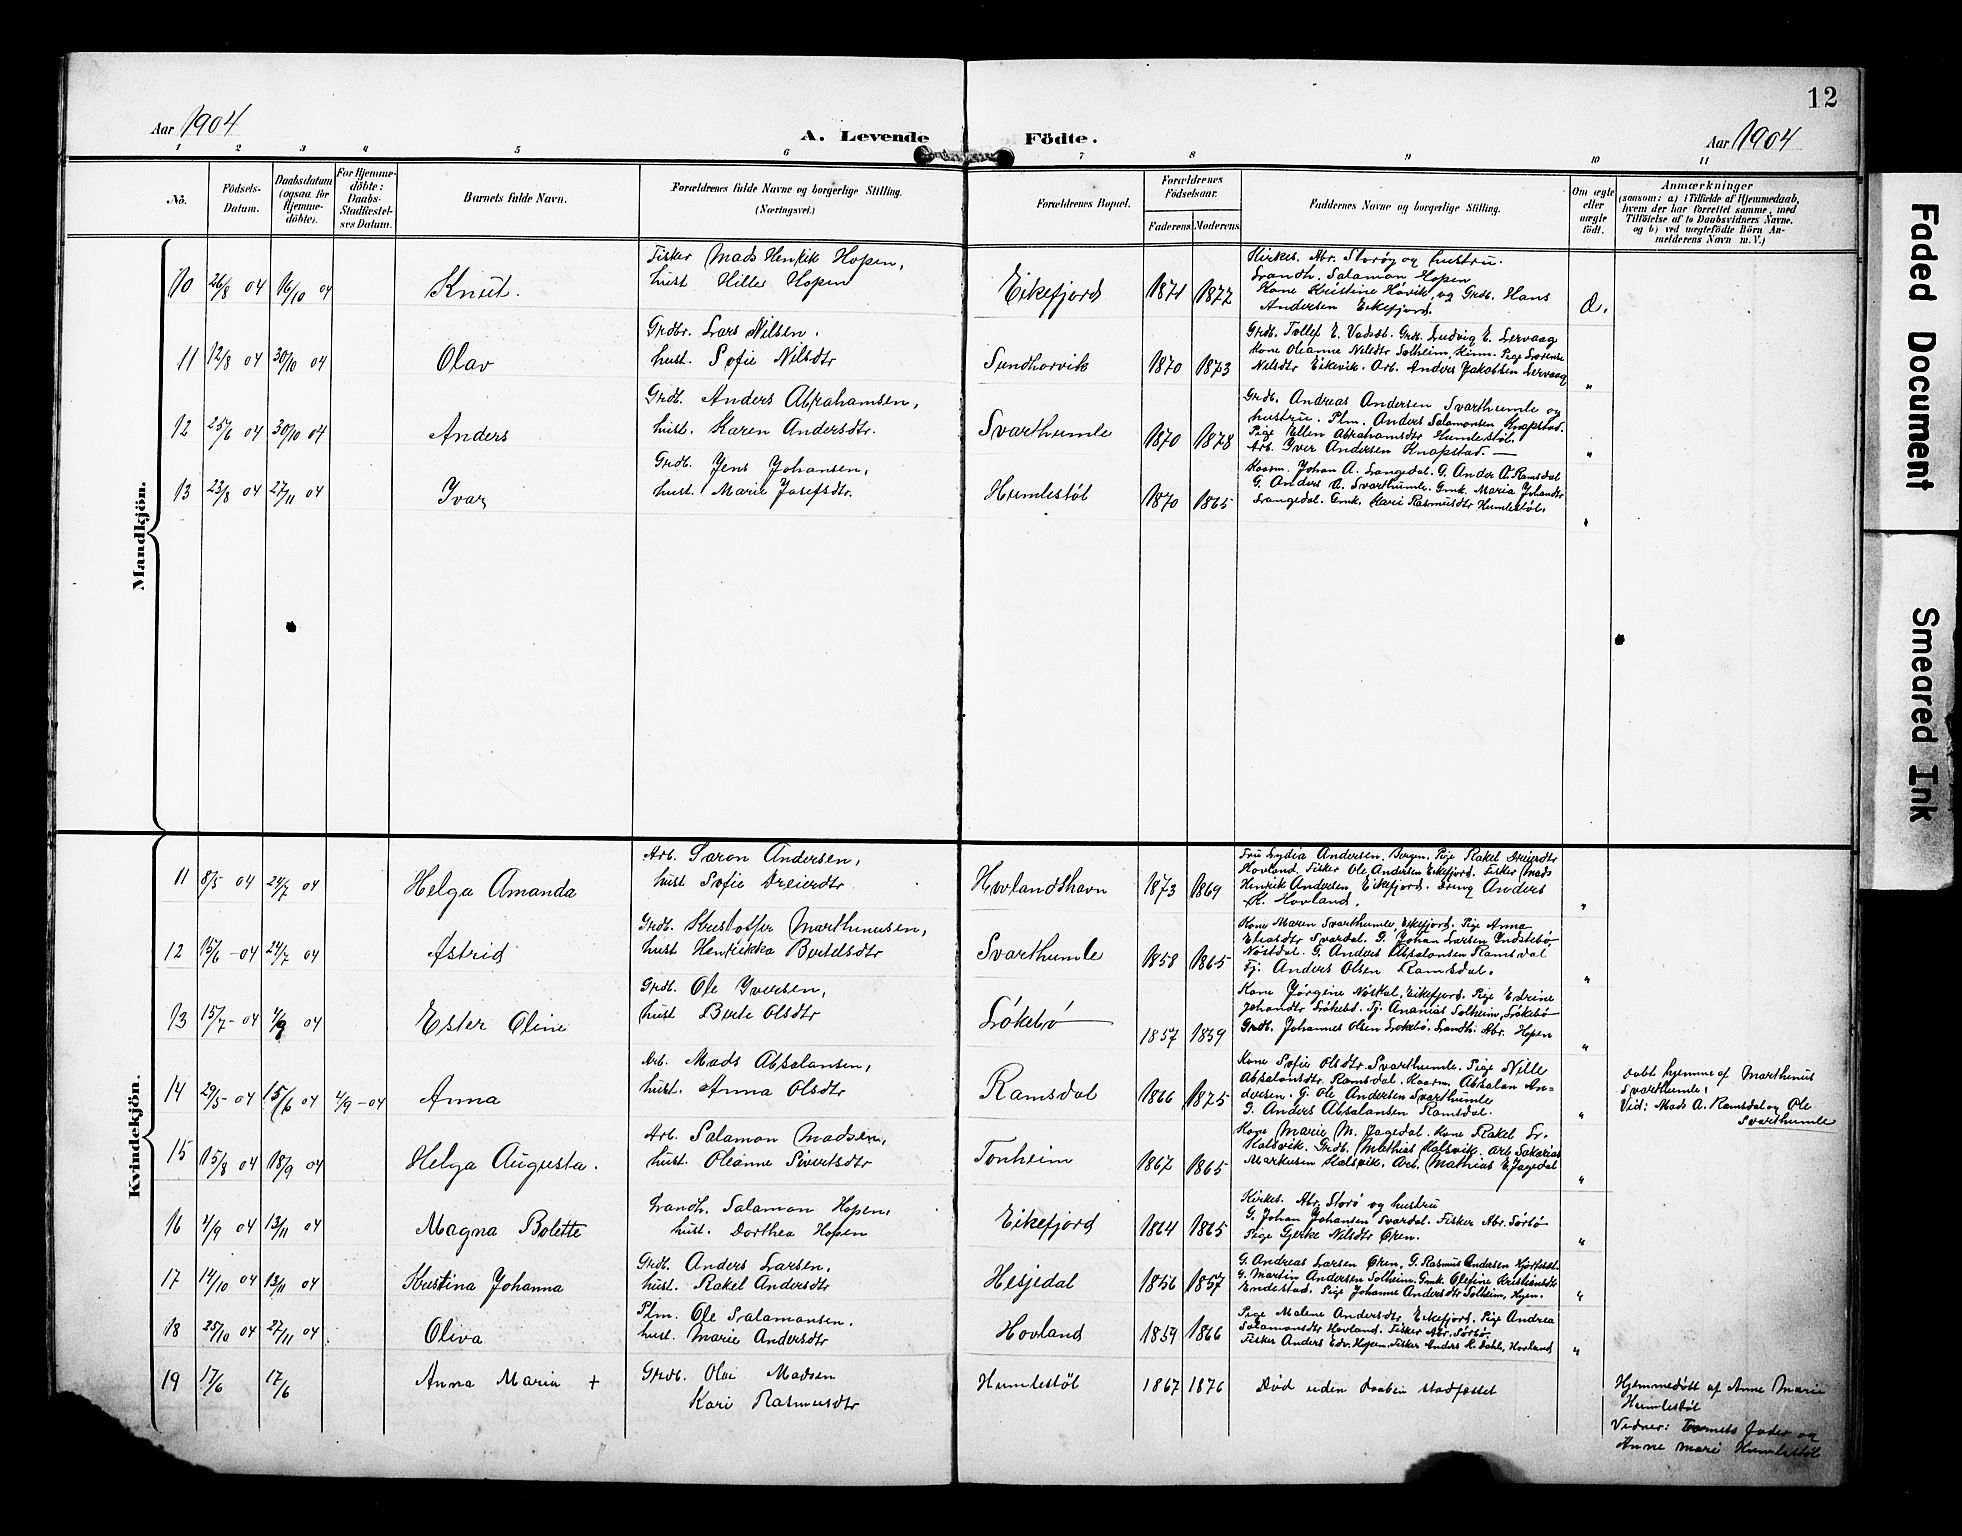 12
Aar 1904
A. Levende Födte.
Aar 1904
1 2 3 4 5 6 7 8 9 10 11
No.
Födsels-
Datum.
Daabsdatum
(ogsaa for
Hjemme-
döbte).
For Hjemme-
döbte:
Daabs-
Stadfæstel-
ses Datum.
Barnets fulde Navn.
Forældrenes fulde Navne og borgerlige Stilling.
(Næringsvei.)
Forældrenes Bopæl.
Forældrenes
Födselsaar.
Faderens Moderens
Faddernes Navne og borgerlige Stilling.
Om ægte
eller
uægte
födt.
Anmærkninger
(saasom: a) i Tilfælde af Hjemmedaab,
hvem der har forrettet samme, med
Tilföielse af to Daabsvidners Navne.
og b) ved uegtefödte Börn An-
melderens Navn m. V.)
Mandkjön.
10 26/8 04 16/10 04 Knut.
Fisker Mads Henrik Hopen,
hust Hille Hopen
Eikefjord 1871 1877
Kirkes. Abr. Storøy og hustru.
Landh. Salamon Hopen
Kone Kristine Høvik, og Grdb. Hans
Andersen Eikefjord.
11 12/8 04 30/10 04 Olav
Grdbr. Lars Nilsen.
hust. Sofie Nilsdtr
Sundhorvik 1870 1873
Grdb. Tollef E. Vadset. Grdb. Ludvig E. Lervaag
Kone Oleanne Nilsdtr Solheim, Kinn. Pige Lorense
Nilsdtr Eikevik. Arb. Anders Jakobsen Lervaag
"
12 25/6 04 30/10 04 Anders
Grdb. Anders Abrahamsen,
hust. Karen Andersdtr.
Svarthumle 1870 1878
Grdb. Andreas Andersen Svarthumle og
hustru. Plm. Anders Salamonsen Knapstad.
Pige Ellen Abrahamsdtr Humlestøl.
Arb. Iver Andersen Knapstad. —
"
13 23/8 04 27/11 04 Ivar
Grdb. Jens Johansen,
hust. Marie Josefsdtr.
Humlestøl 1870 1865
Kaarm. Johan A. Langedal. G. Ander A. Ramsdal
G. Anders A. Svarthumle. Gmk. Maria Johandtr
Langedal. Gmk. Kari Rasmusdtr Humlestøl.
"
Kvindekjön.
11 8/5 04 24/7 04 Helga Amanda
Arb. Saron Andersen,
hust Sofie Dreierdtr
Hovlandshavn 1873 1869
Fru Lydia Andersen, Bergen. Pige Rakel Dreierdtr
Hovland, Fisker Ole Andersen Eikefjord. Fisker Mads
Henrik Andersen, Eikefjord. Dreng Anders
K. Hovland.
"
12 15/6 - 04 24/7 04 Astrid
Grdb. Kristoffer Marthinusen,
hust Henrikka Bertelsdtr
Svarthumle 1858 1865
Kone Maren Svarthumle, Eikefjord. Pige Anna
Eliasdtr Svardal. G. Johan Larsen Indstebø
Nøstdal. G. Anders Absalonsen Ramsdal
Tj. Anders Olsen Ramsdal.
"
13 15/7 - 04 4/9 04 Ester Oline
Grdb. Ole Iversen,
hust Berte Olsdtr
Løkebø 1857 1859
Kone Jørgine Eikefjord. Pige Edrine
Johandtr Løkebø. Tj. Ananias Solheim, Løkebø
Grdb. Johannes Olsen Løkebø. Landh. Abr. Hopen
"
14 29/5 - 04 15/6 04 4/9 - 04 Anna
Arb. Mads Absalonsen,
hust. Anna Olsdtr
Ramsdal 1866 1875
Kone Sofie Olsdtr Svarthumle. Pige Nille
Absalonsdtr Ramsdal. Kaarm. Absalon An-
dersen. G. Ole Andersen Svarthumle
G. Anders Absalonsen Ramsdal.
"
Døbt hjemme af Marthinus
Svarthumle,
Vid: Mads A. Ramsdal og Ole
Svarthumle
15 15/8 04 18/9 04 Helga Augusta.
Arb. Salamon Madsen,
hust. Oleanne Sivertsdtr
Tonheim 1867 1865
Kone Marie M. Fagedal. Kone Rakel Lr.
Halsvik. Grdb. Mathias Halsvik. Arb. Sakarias
Markusen Halsvik. Arb. Mathias E. Fagedal
"
16 4/9 04 13/11 04 Magna Bolette
Landh. Salamon Hopen,
hust. Dorthea Hopen
Eikefjord 1864 1865
Kirkes. Abr. Storø og hustru
G. Johan Johansen Svardal. Fisker Abr. Sørbø
Pige Gjerke Nilsdtr Øren.
"
17 14/10 04 13/11 04 Kristina Johanna
Grdb. Anders Larsen,
hust. Rakel Andersdtr
Hesjedal 1856 1857
G. Andreas Larsen Øren, G. Rasmus Andersen Hjorteset.
G. Martin Andersen Solheim. Gmk. Olefine Kristiansdtr
Endestad. Pige Johanne Andersdtr Solheim, Hyen.
"
18 25/10 04 27/11 04 Oliva
Plm. Ole Salamonsen,
hust. Marie Andersdtr
Hovland 1859 1866
Pige Malene Andersdtr Eikefjord, Pige Andrea
Salamonsdtr Hovland. Fisker Abr. Sørbø
Fisker Anders Edv. Hopen. Fisker Anders K. Dahle, Hovland
"
19 17/6 17/6 Anna Maria +
Grdb. Olai Madsen
Kari Rasmusdtr
Humlestøl 1867 1876
Død uden Daaben stadfæstet
Hjemmedøbt af Anne Marie
Humlestøl
Vidner: Barnets fader og
Anne Marie Humlestøl
Faded Document
Smeared Ink